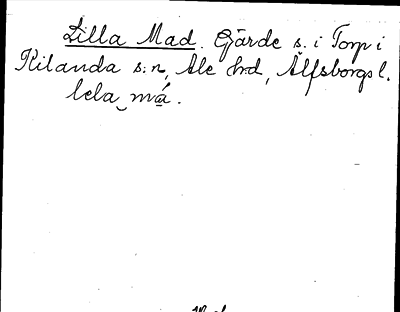 Lilla Mad. Gärde s. i Torp i
Kilanda s:n, Ale hd, Älfsborgs l.
lela ‿ má.